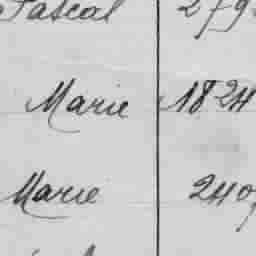 Pascal 279
Marie 1824
Marie 2409